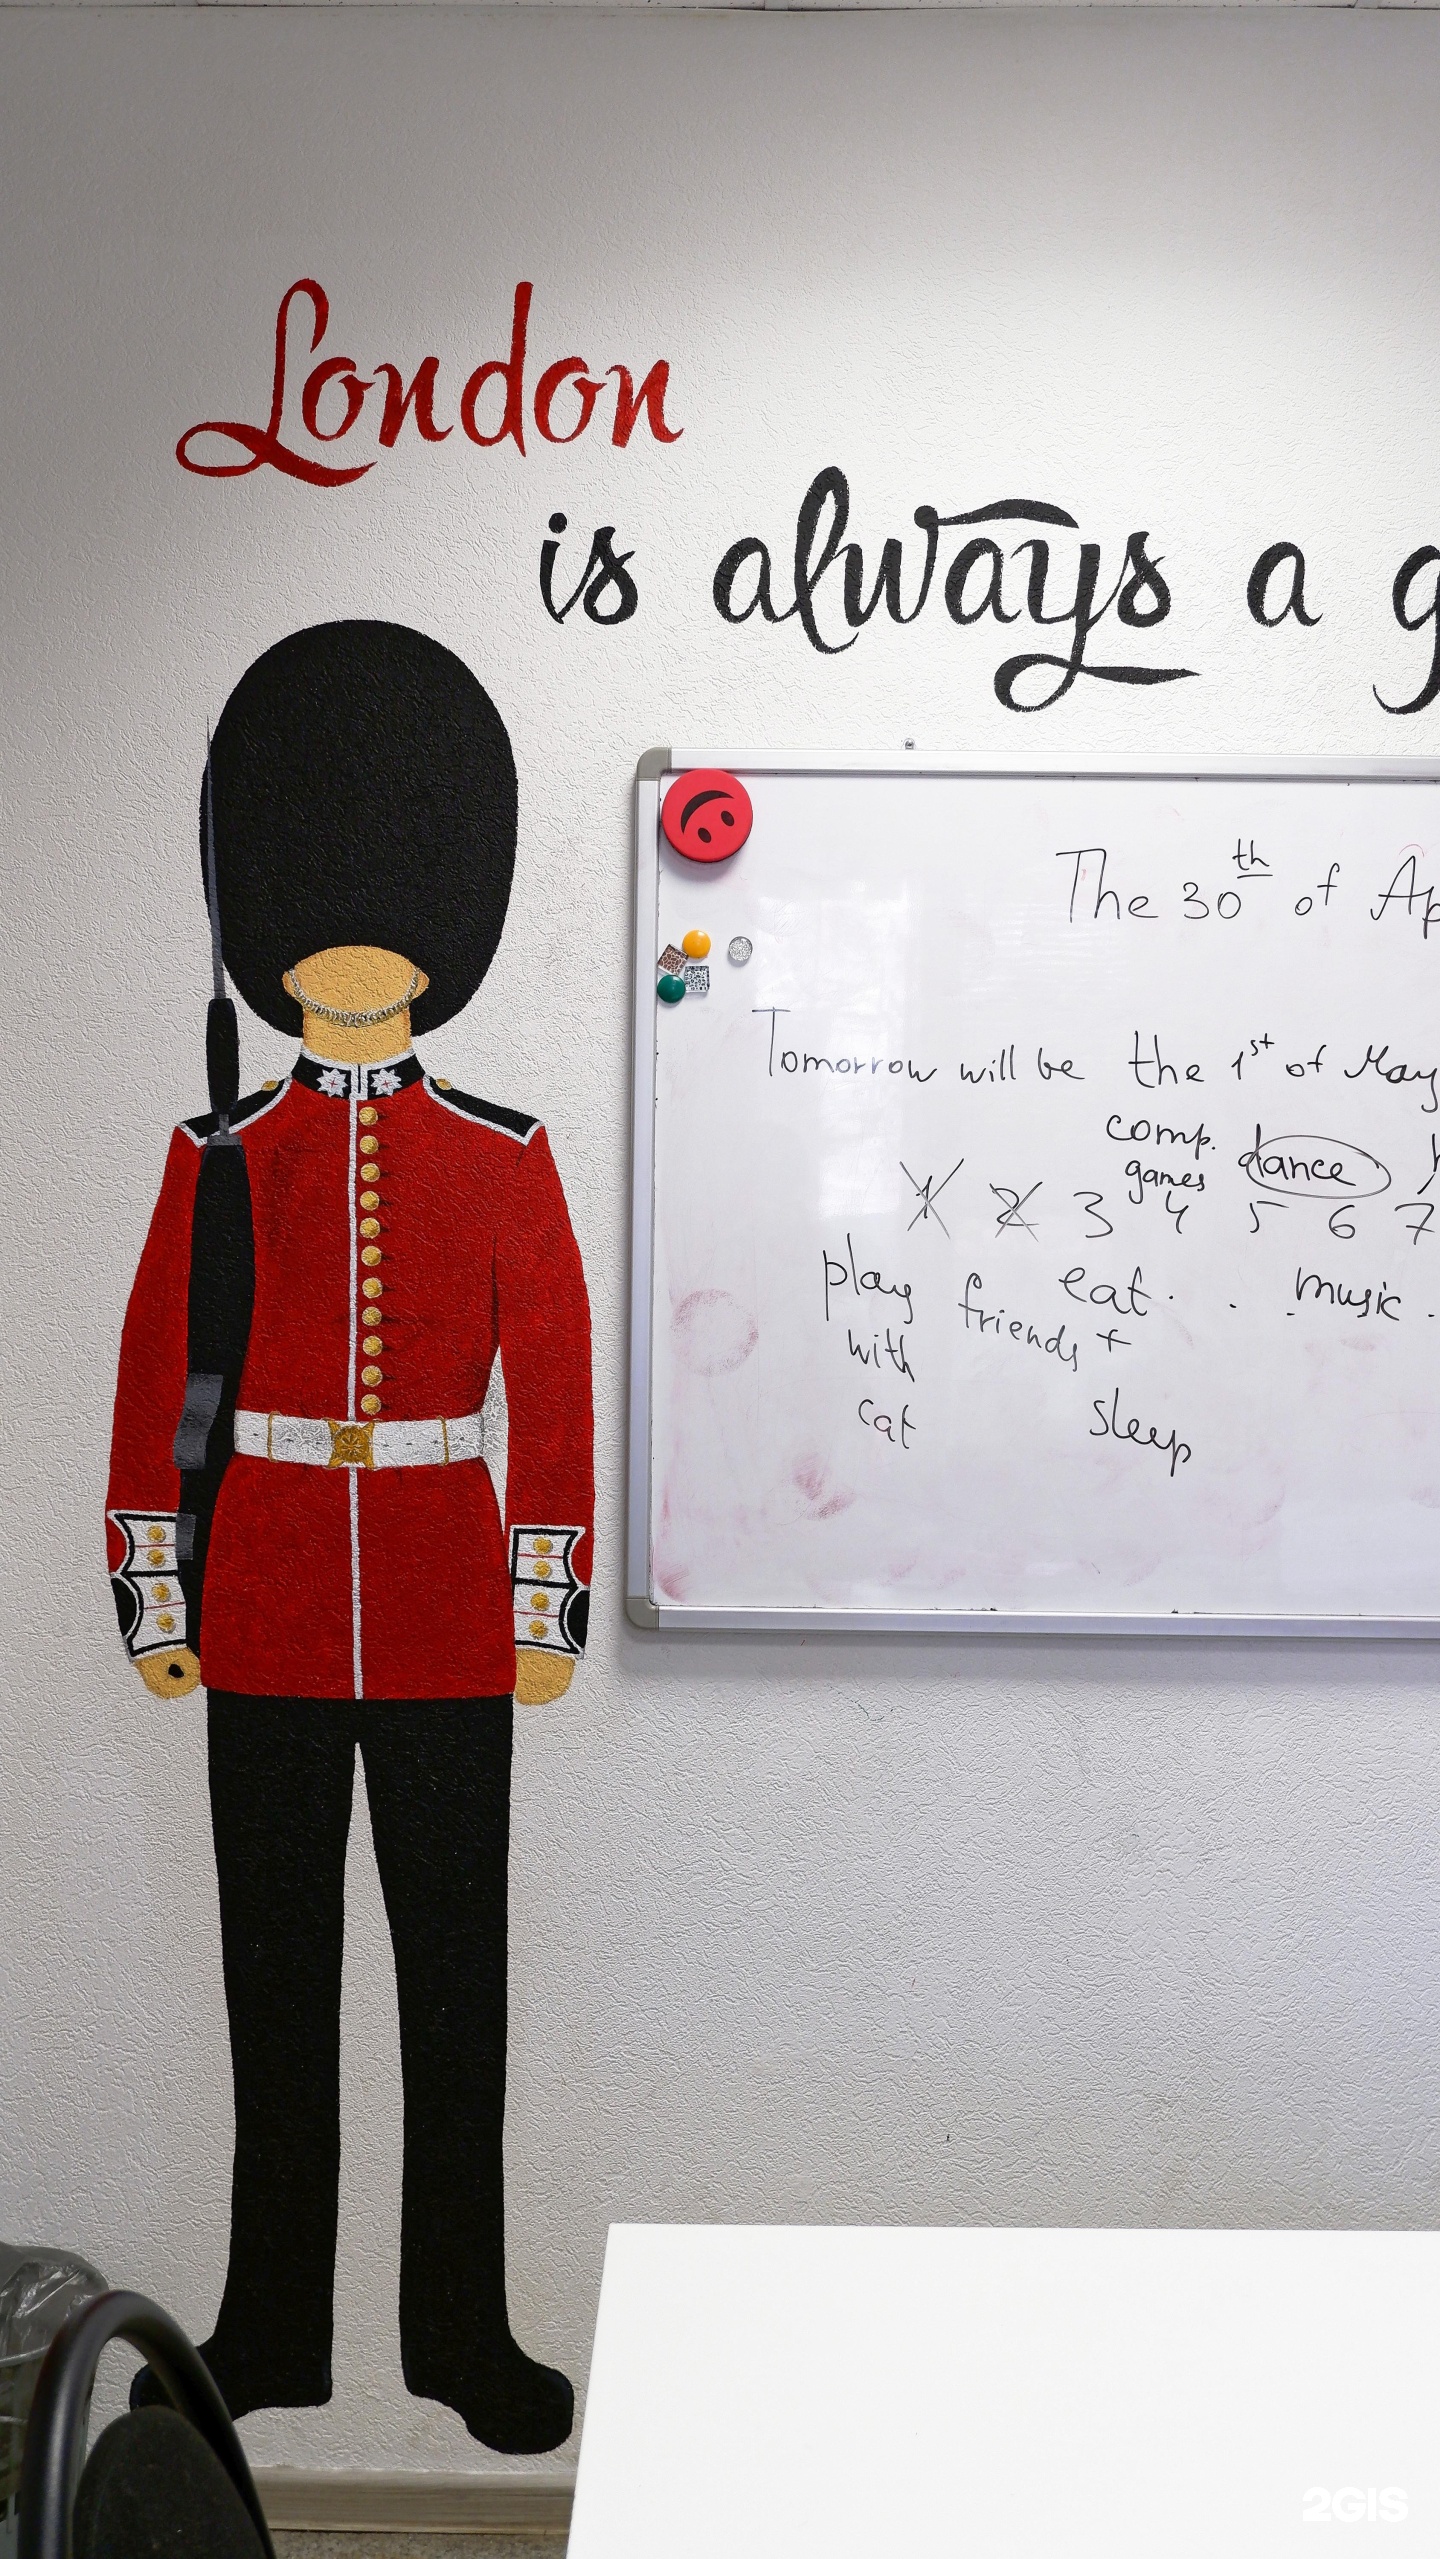 London
is always a g
The 30th of Ap
Tomorrow will be the 1st of May
comp. games dance
1 2 3 4 5 6 7
play with cat
friends +
eat.
sleep
music.
2GIS